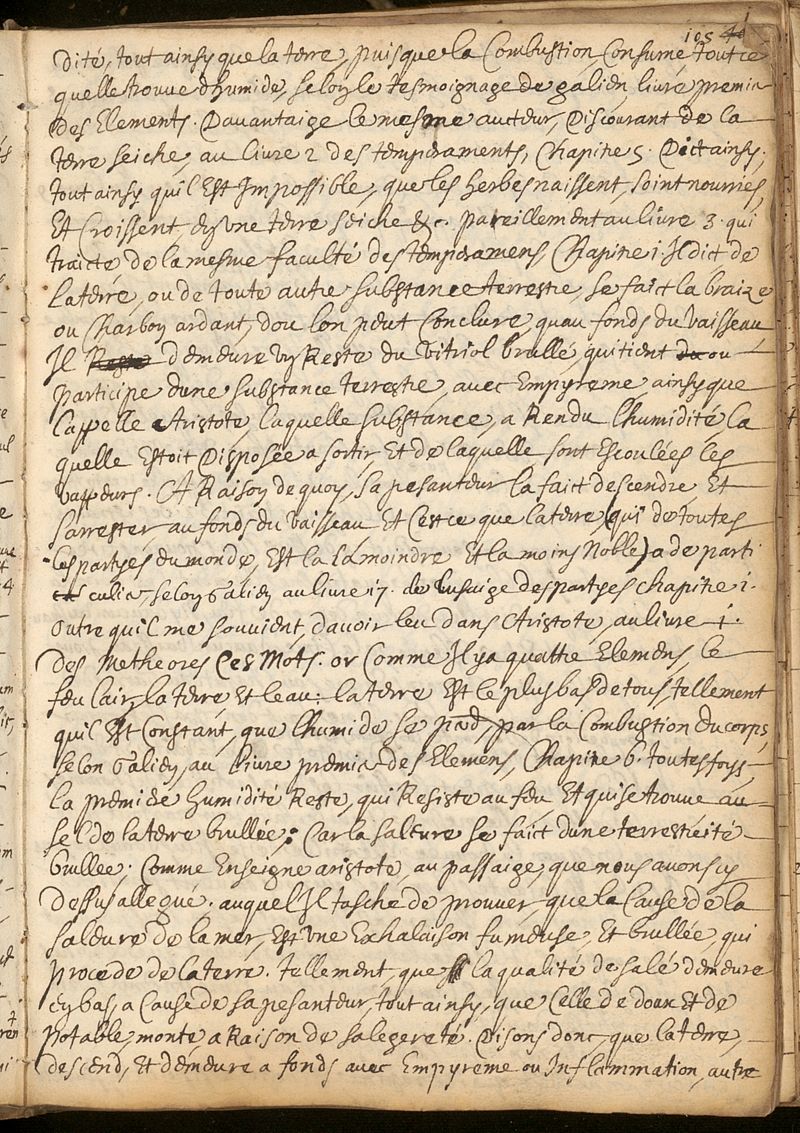 105 41
dité, tout ainsy que la terre, puisque la Combustion, Consume tout ce
quelle trouve dhumide, selon le tesmoignage de galien, livre premier
des Elements. Davantaige le mesme aucteur, Discourant de la
terre seiche, au livre 2 des temperaments, Chapitre 5. Dict ainsy,
tout ainsy quil Est Impossible, que les herbes naissent, soint nourries
Et Croissent, en une terre seiche &c. pareillement au livre 3. qui
traicte de la mesme faculté des temperamens Chapitre i. Il dict de
la terre, ou de toute autre substance terrestre, se faict la braize
ou Charbon ardant, dou lon peut Conclure, quau fonds du vaisseau
Il demeure un Reste du vitriol brullé, qui tient ou
participe dune substance terrestre, avec Empyreme, ainsy que
lappelle Aristote, laquelle substance, a Rendu lhumidité, la
quelle Estoit Disposée a sortir, Et de laquelle sont Escoulées les
vappeurs. A Raison de quoy, sa pesanteur la faict descendre, Et
sarrester, au fonds du vaisseau Et Cest ce que la terre (qui de toutes
les partyes du monde, Est la Lamoindre Et la moins Noble) a de parti
culier, selon Galien au livre 17. de lusaige des partyes chapitre i.
Outre quil me souvient, davoir leu dans Aristote, au livre i.
des Metheores Ces Mots. or Comme Il ya quattre Elemens, le
feu lair, la terre Et leau: la terre Est le plus bas de tous, tellement
quil Est Constant, que lhumide se perd, par la Combustion du corps,
selon Galien, au livre premier des Elemens, Chapitre 6. toutesfoys
la premiere humidité Reste, qui Resiste au feu Et qui se trouve au
sel de la terre brullée: Car la saleure se faict dune terrestreité
brullee. Comme Enseigne aristote, au passaige, que nous avons cy
dessus allegué. auquel Il tasche de prouver, que la Cause de la
saleure de la mer, Est une Exhalaison fumeuse, Et brullée, qui
procede de la terre. tellement, que la qualité de salé demeure
en bas, a Cause de sa pesanteur, tout ainsy, que Celle de doux Et de
potable, monte a Raison de sa legereté. Disons donc, que la terre,
descend, Et demeure a fonds avec Empyreme ou Inflammation, autre